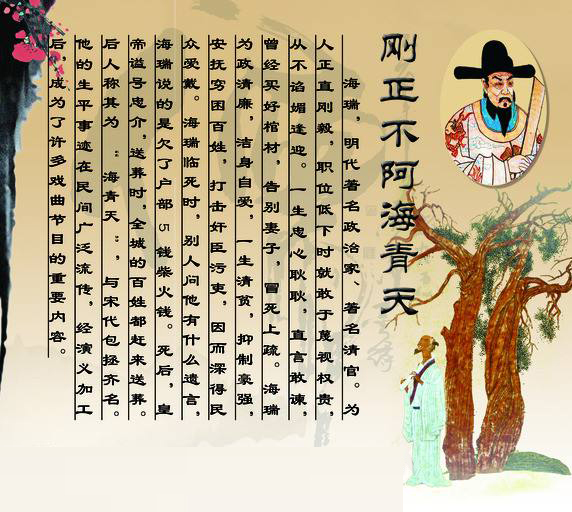 刚正不阿海青天
海瑞，明代著名政治家、著名清官。为
人正直刚毅，职位低下时就敢于蔑视权贵，
从不谄媚逢迎。一生忠心耿耿，直言敢谏，
曾经买好棺材，告别妻子，冒死上疏。海瑞
为政清廉，洁身自爱，一生清贫，抑制豪强，
安抚穷困百姓，打击奸臣污吏，因而深得民
众爱戴。海瑞临死时，别人问他有什么遗言，
海瑞说的是欠了户部5钱柴火钱。死后，皇
帝谥号忠介，送葬时，全城的百姓都赶来送葬。
后人称其为“海青天”，与宋代包拯齐名。
他的生平事迹在民间广泛流传，经演义加工
后，成为了许多戏曲节目的重要内容。